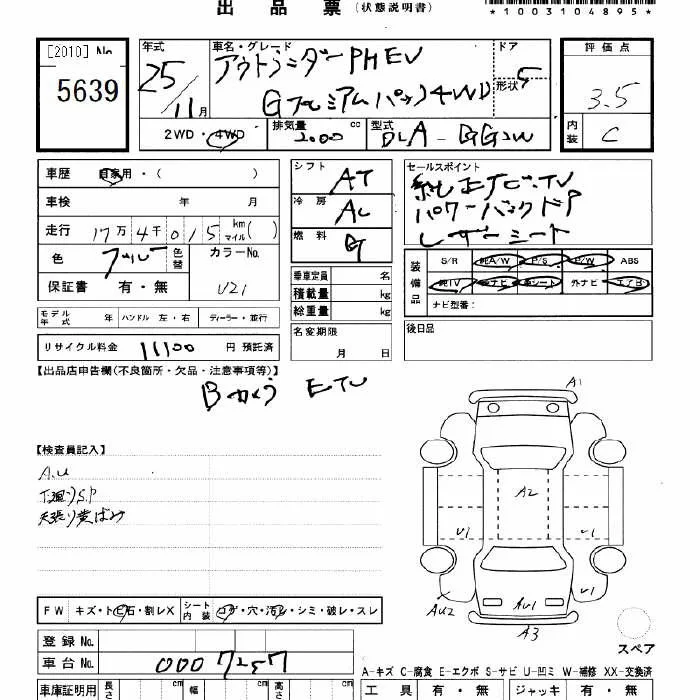 出品票（状態説明書）
*1003104895*
[2010] No. 5639
年式 25/11月
車名・グレード アウトランダーPHEV
Gプレミアムパック4WD
ドア 5
形状
評価点 3.5
内装 C
2WD・4WD 排気量 2000 cc 型式 DLA-GG2W
車歴 自家用・（ ）
シフト AT
セールスポイント
純正ナビ・TV
パワーバックドア
レザーシート
車検 年 月
冷房 AC
走行 17万4千015 km マイル( )
燃料 G
色 ブルー 色替 カラーNo. U21
保証書 有・無
乗車定員 名
積載量 kg
総重量 kg
装備品 S/R 純A/W P/S P/W ABS
純TV 純ナビ 革シート 外ナビ エアB
ナビ型番：
モデル年式 年 ハンドル 左・右 ディーラー・並行
名変期限 月 日
後日品
リサイクル料金 11100 円 預託済
【出品店申告欄(不良箇所・欠品・注意事項等)】
Bカメラ ETC
A1
【検査員記入】
A.U
下廻りS.P
天張り黄ばみ
A2
U1 U1
AU2 AU1
A3
スペア
FW キズ・トビ石・割レX シート内装 コゲ・穴・汚レ・シミ・破レ・スレ
登録No.
車台No. 0007257
A-キズ C-腐食 E-エクボ S-サビ U-凹ミ W-補修 XX-交換済
車庫証明用 長さ cm 幅 cm 高さ cm
工具 有・無 ジャッキ 有・無